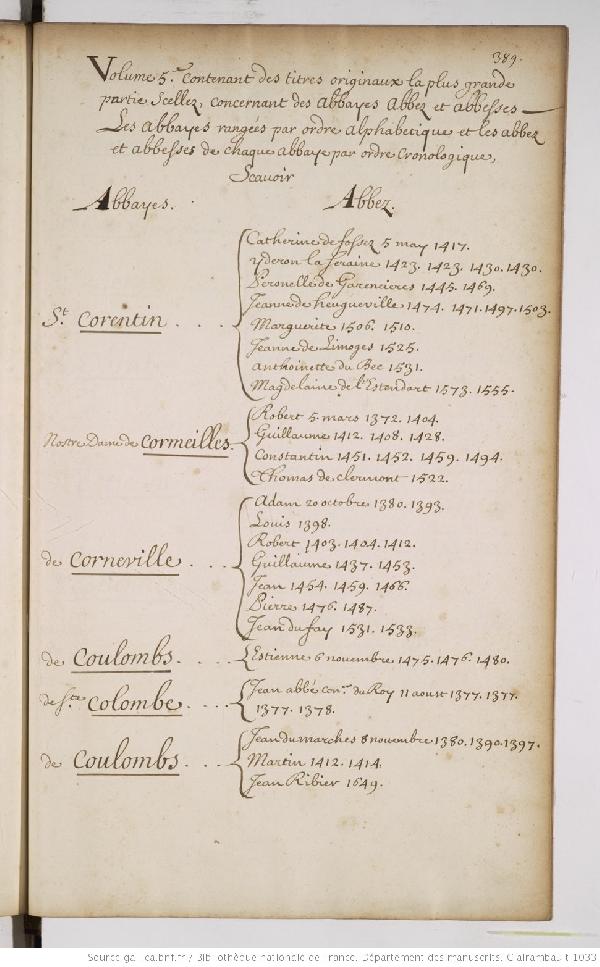 389.
Volume 5.e contenant des titres originaux la plus grande
partie Scellez, concernant des Abbayes Abbez et abbesses
Les Abbayes rangés par ordre Alphabetique et les abbez
et abbesses de chaque Abbaye par ordre Cronologique,
Scavoir
Abbayes. Abbez.
St. Corentin . . . .
Catherine de fossez 5 may 1417.
yderon la feraine 1423. 1423. 1430. 1430.
Peronelle de Garencieres 1445. 1469.
Jeanne de heugueville 1474. 1471. 1497. 1503.
Marguerite 1506. 1510.
Jeanne de Limoges 1525.
Anthoinette du Bec 1531.
Magdelaine de l'Estendart 1573. 1555.
Nostre Dame de Cormeilles.
Robert 5 mars 1372. 1404.
Guillaume 1412. 1408. 1428.
Constantin 1451. 1452. 1459. 1494.
Thomas de clermont 1522.
de Corneville . . . .
Adam 20 octobre 1380. 1393.
Louis 1398.
Robert 1403. 1404. 1412.
Guillaume 1437. 1453.
Jean 1454. 1459. 1466.
Pierre 1476. 1487.
Jean du fay 1531. 1533.
de Coulombs. . . . . Estienne 6 novembre 1475. 1476. 1480.
de Ste. Colombe . . .
Jean abbé con.er du Roy 11 aoust 1377. 1377.
1377. 1378.
de Coulombs . . . .
Jean du marches 8 novembre 1380. 1390. 1397.
Martin 1412. 1414.
Jean Ribier 1649.
Source gallica.bnf.fr / Bibliothèque nationale de France. Département des manuscrits. Clairambault 1033